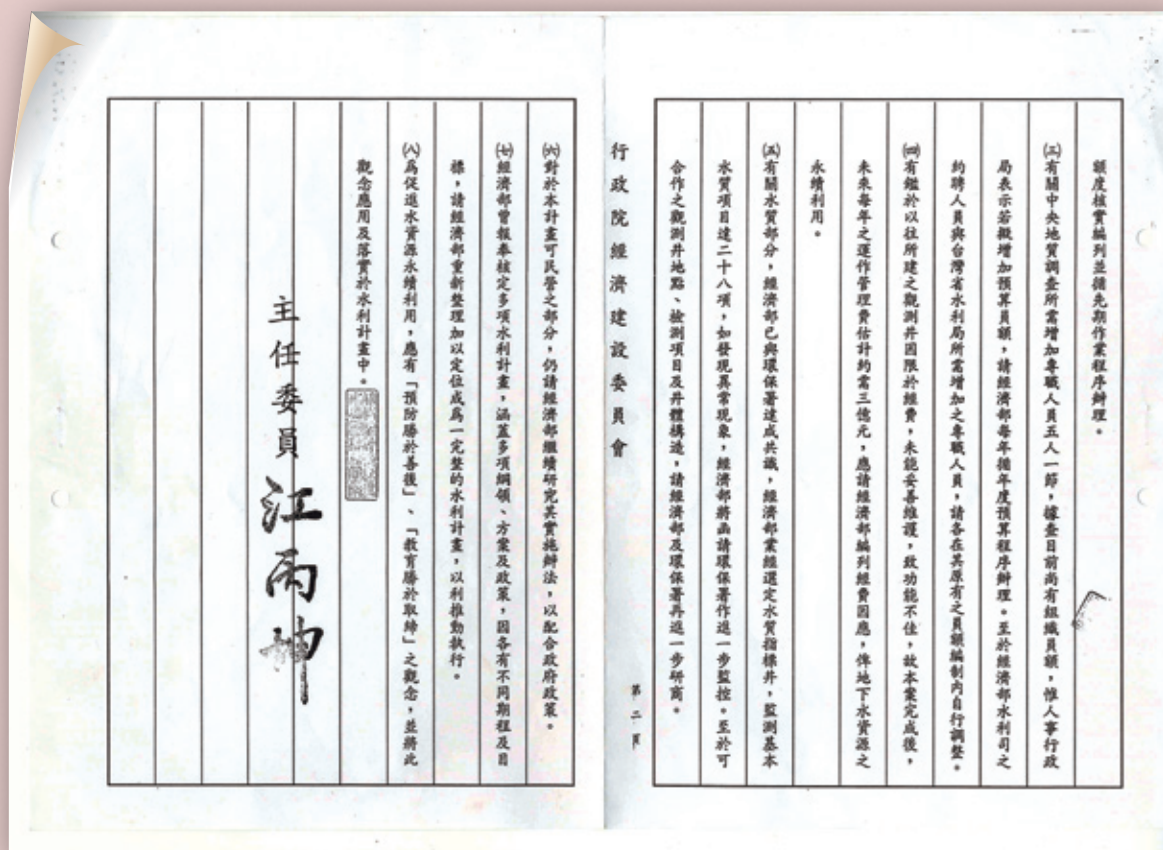 額度核實編列並循先期作業程序辦理。
㈢有關中央地質調查所需增加專職人員五人一節，據查目前尚有組織員額，惟人事行政
局表示若擬增加預算員額，請經濟部每年循年度預算程序辦理。至於經濟部水利司之
約聘人員與台灣省水利局所需增加之專職人員，請各在其原有之員額編制內自行調整。
㈣有鑑於以往所建之觀測井因限於經費，未能妥善維護，致功能不佳，故本案完成後，
未來每年之運作管理費估計約需三億元，應請經濟部編列經費因應，俾地下水資源之
永續利用。
㈤有關水質部分，經濟部已與環保署達成共識，經濟部業經選定水質指標井，監測基本
水質項目達二十八項，如發現異常現象，經濟部將函請環保署作進一步監控。至於可
合作之觀測井地點、檢測項目及井體構造，請經濟部及環保署再進一步研商。
行政院經濟建設委員會
第二頁
㈥對於本計畫可民營之部分，仍請經濟部繼續研究其實施辦法，以配合政府政策。
㈦經濟部曾報奉核定多項水利計畫，涵蓋多項綱領、方案及政策，因各有不同期程及目
標，請經濟部重新整理加以定位成為一完整的水利計畫，以利推動執行。
㈧為促進水資源永續利用，應有「預防勝於善後」、「教育勝於取締」之觀念，並將此
觀念應用及落實於水利計畫中。
主任委員 江丙坤